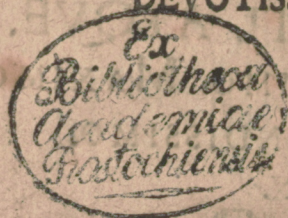 DEVOTIS
Ex
Bibliotheca
Academiae
Rostochiensis